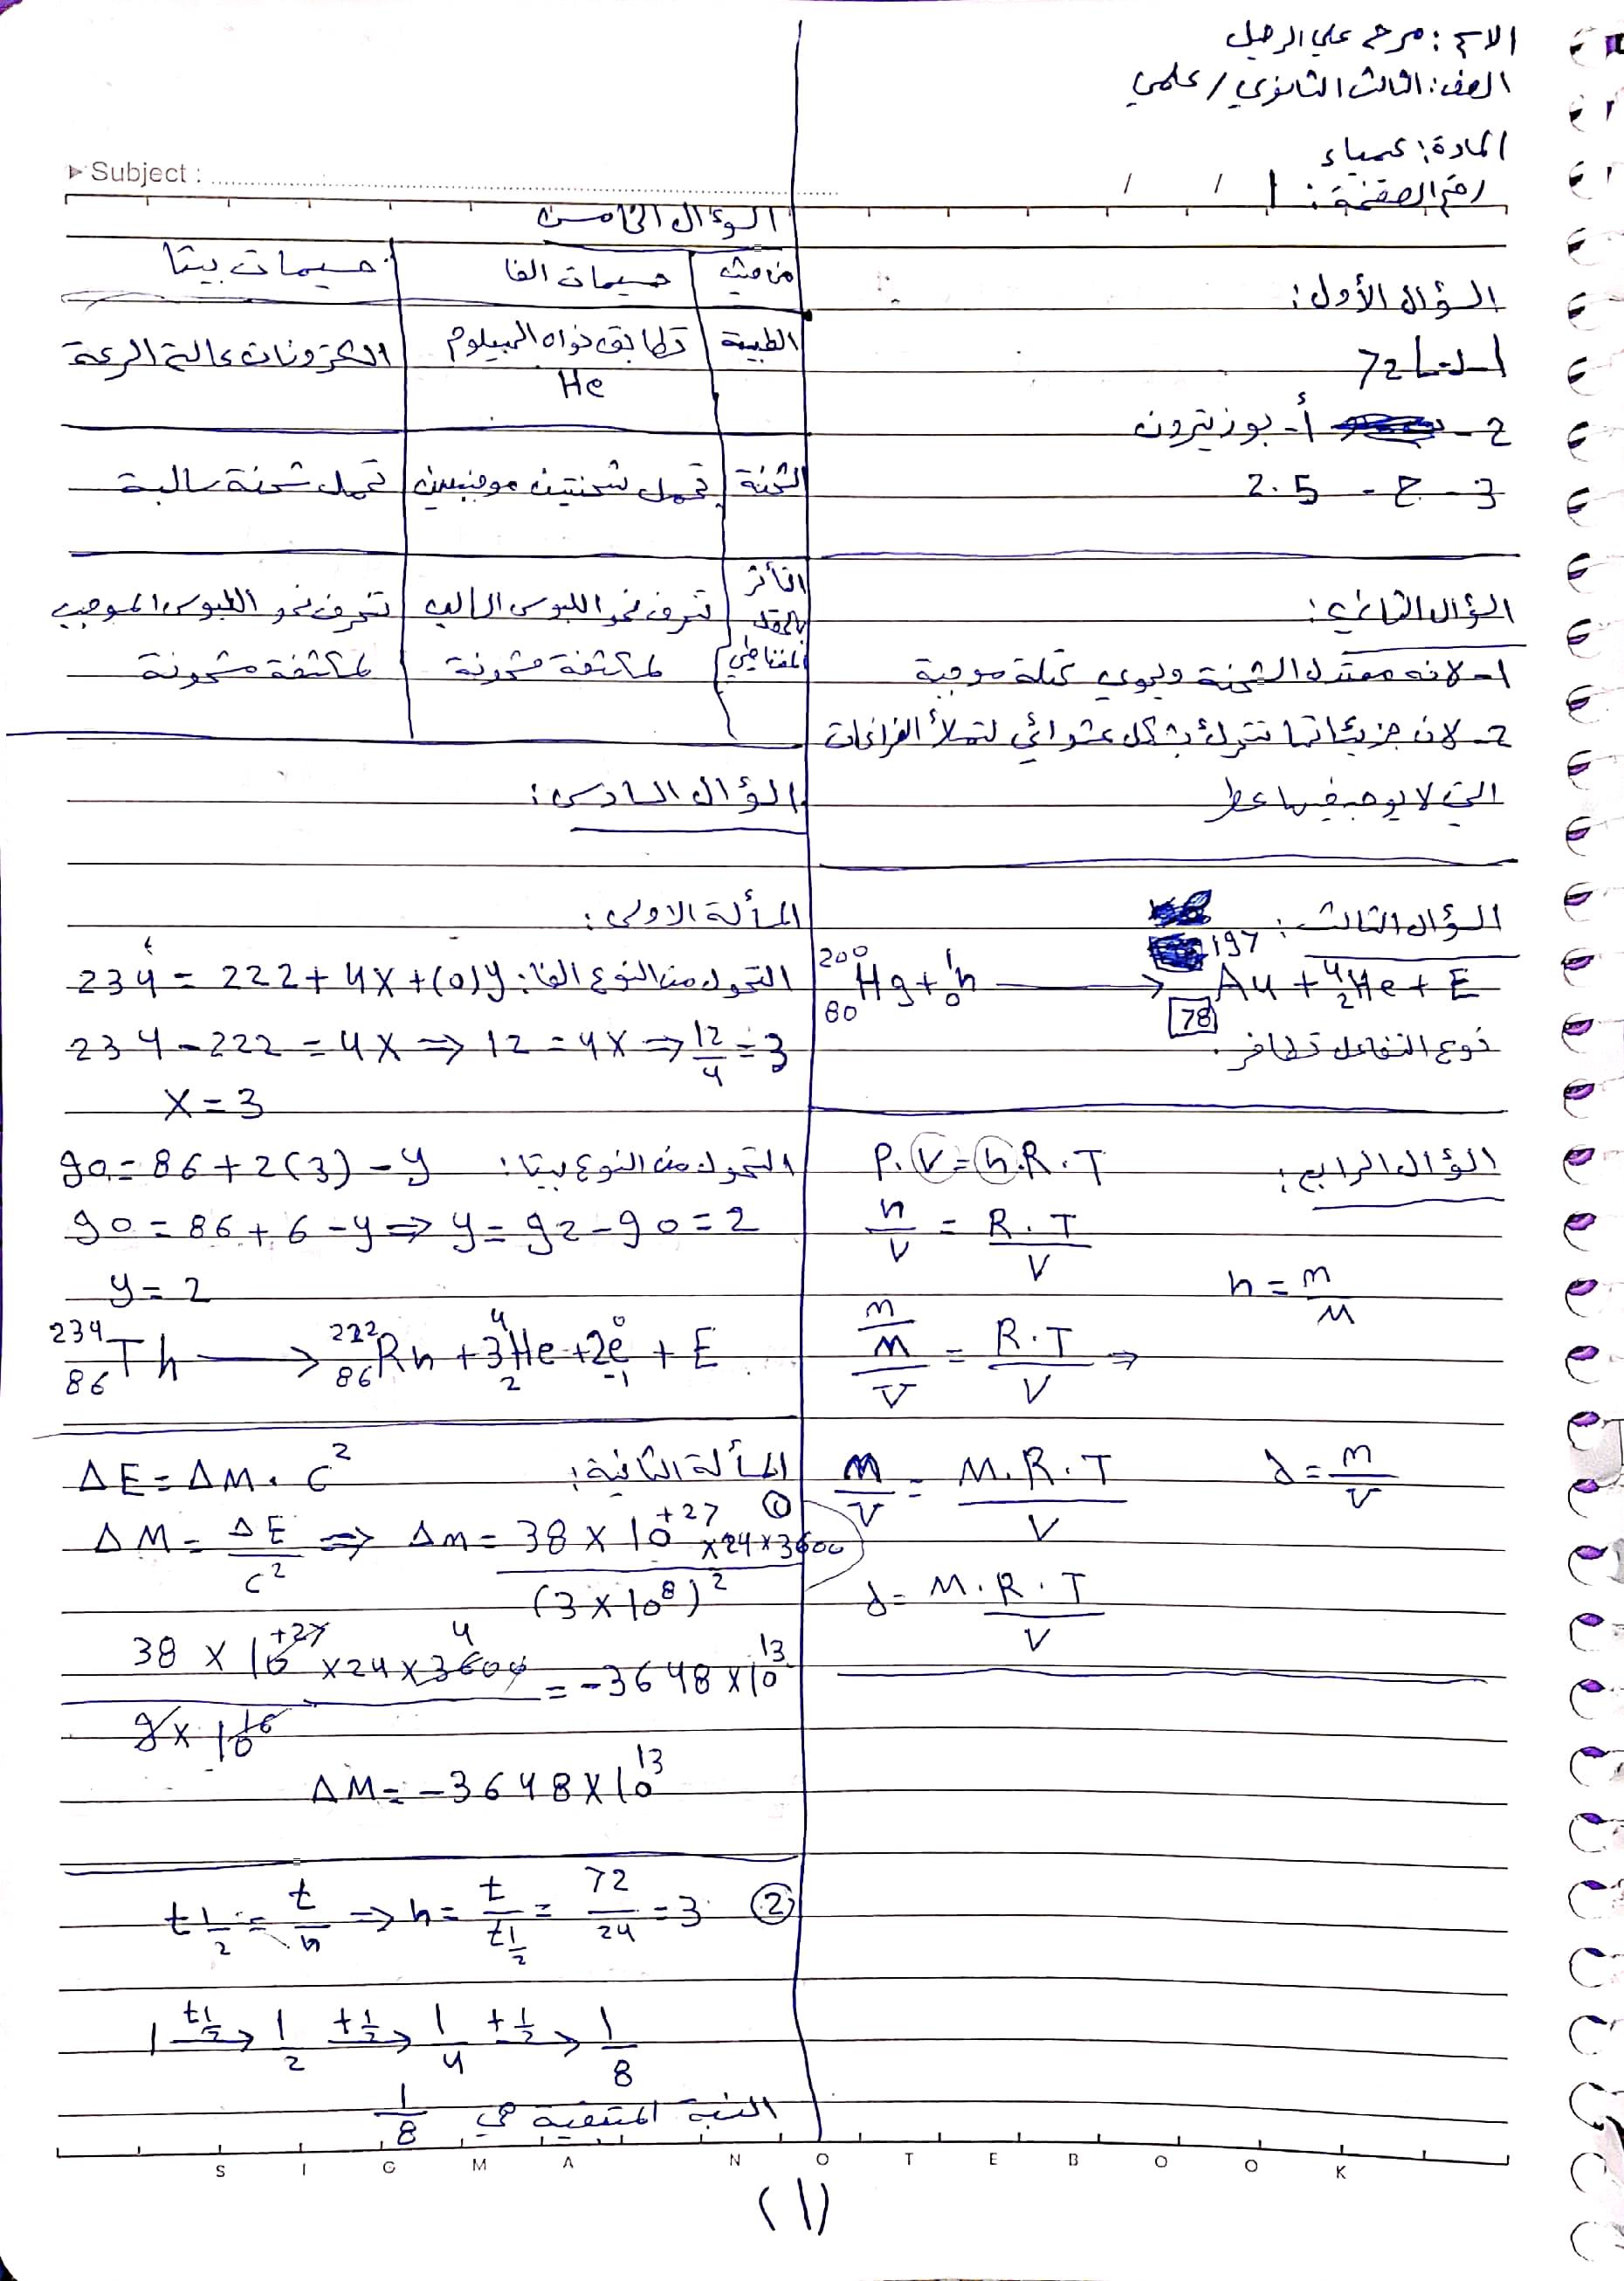 الاسم: مرح علي الرحيل
الصف: الثالث الثانوي / علمي
المادة: كيمياء
رقم الصفحة: 1
Subject :
/ /
السؤال الأول:
72
2- أ- بوزيترون
3- ج - 2.5
السؤال الثاني:
1- لانه معتدل الشحنة
2- لان جزيئاتها تتحرك بشكل عشوائي لتملأ الفراغات
التي لا يوجد فيها عطر
السؤال الثالث:
²⁰⁰₈₀Hg + ¹₀n → ¹⁹⁷₇₈Au + ⁴₂He + E
نوع التفاعل تطافر.
السؤال الرابع:
P.V = n.R.T
n/V = R.T/V
n = m/M
(m/M)/V = R.T/V ⇒
m/V = M.R.T/V
d = m/V
d = M.R.T/V
السؤال الخامس
من حيث | جسيمات الفا | جسيمات بيتا
الطبيعة | تطابق نواه الهيليوم He | الكترونات عالية السرعة
الشحنة | تحمل شحنتين موجبتين | تحمل شحنة سالبة
التأثر بالحقل المغناطيسي | تنحرف نحو اللبوس السالب لمكثفة مشحونة | تنحرف نحو اللبوس الموجب لمكثفة مشحونة
السؤال السادس:
المسألة الاولى:
التحول من النوع الفا: 234 = 222 + 4x + (0)y
234 - 222 = 4x ⇒ 12 = 4x ⇒ 12/4 = 3
x = 3
التحول من النوع بيتا: 90 = 86 + 2(3) - y
90 = 86 + 6 - y ⇒ y = 92 - 90 = 2
y = 2
²³⁴₈₆Th → ²²²₈₆Rn + 3⁴₂He + 2⁰₋₁e + E
المسألة الثانية:
ΔE = ΔM . C²
①
ΔM = ΔE/C² ⇒ Δm = 38 × 10⁺²⁷ × 24 × 3600 / (3 × 10⁸)²
38 × 10⁺²⁷ × 24 × 3600 / 9 × 10¹⁶ = -3648 × 10¹³
4
ΔM = -3648 × 10¹³
② t½ = t/n ⇒ n = t/t½ = 72/24 = 3
1 →(t½) 1/2 →(t½) 1/4 →(t½) 1/8
النسبة المتبقية هي 1/8
SIGMA NOTEBOOK
(1)